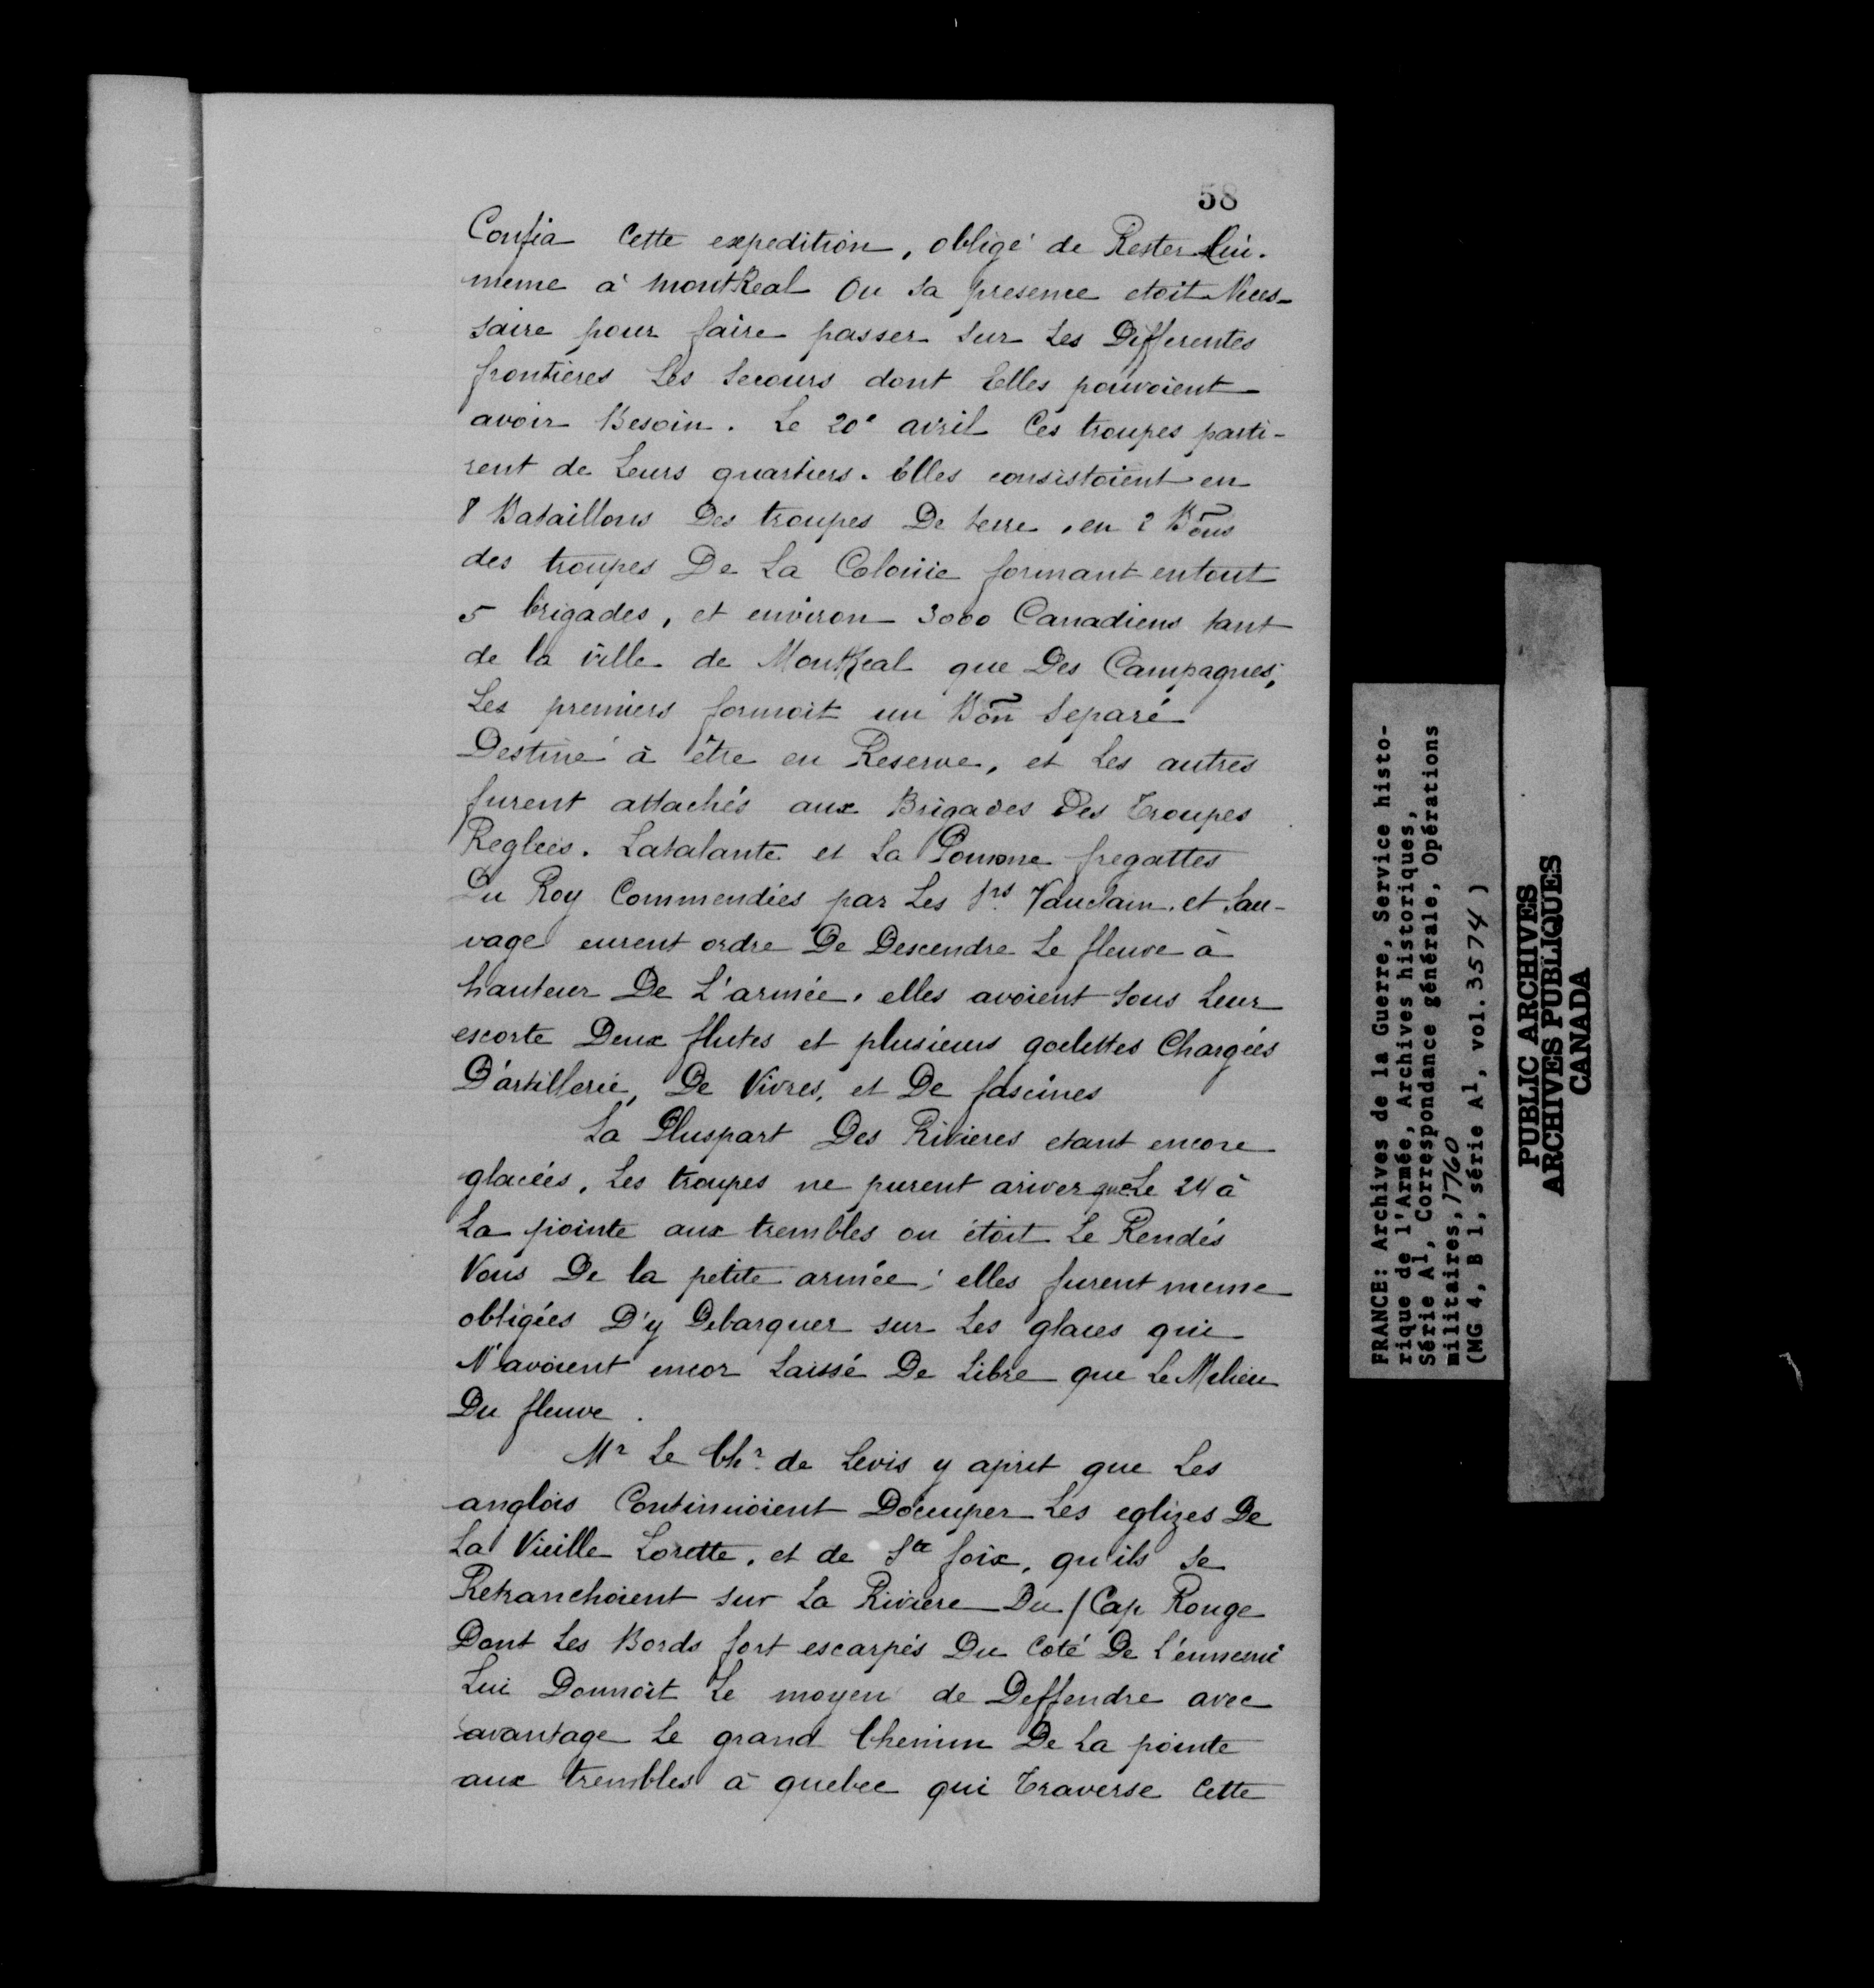 58
Confia Cette expedition, obligé de Rester Lui-
meme à MontReal Ou Sa presence etoit Neces-
saire pour faire passer Sur Les Differentes
frontieres Les Secours dont Elles pouvoient
avoir Besoin. Le 20e avril Ces troupes parti-
rent de Leurs quartiers. Elles consistoient en
8 Bataillons Des troupes De terre, en 2 Bons
des troupes De La Colonie formant entout
5 brigades, et environ 3000 Canadiens tant
de la ville de MontReal que Des Campagnes,
Les premiers formoit un Bon Separé
Destiné à être en Reserve, et Les autres
furent attachés aux Brigades Des Troupes
Reglées. Latalante et La Pomone fregattes
Du Roy Commendées par Les Srs Vauclain et Sau-
vage eurent ordre De Descendre Le fleuve à
hauteur De L'armée, elles avoient Sous Leur
escorte Deux flutes et plusieurs goelettes Chargées
D'artillerie, De Vivres, et De fascines
La Pluspart Des Rivieres etant encore
glacées, Les troupes ne purent ariver que Le 24 à
La pointe aux trembles ou étoit Le Rendés
Vous De la petite armée; elles furent meme
obligées D'y Debarquer sur Les glaces qui
N'avoient encor Laissé De Libre que Le Melieu
Du fleuve.
Mr Le Chr de Levis y aprit que Les
anglois Continuoient Docuper Les eglizes De
La Vieille Lorette, et de Ste foix, qu'ils Se
Retranchoient sur La Riviere Du / Cap Rouge
Dont Les Bords fort escarpés Du Coté De L'énnemi
Lui Donnoit Le moyen de Deffendre avec
avantage Le grand Chemin De La pointe
aux trembles à quebec qui Traverse Cette
FRANCE: Archives de la Guerre, Service histo-
rique de l'Armée, Archives historiques,
Série A1, Correspondance générale, Opérations
militaires, 1760
(MG 4, B 1, série A1, vol. 3574)
PUBLIC ARCHIVES
ARCHIVES PUBLIQUES
CANADA